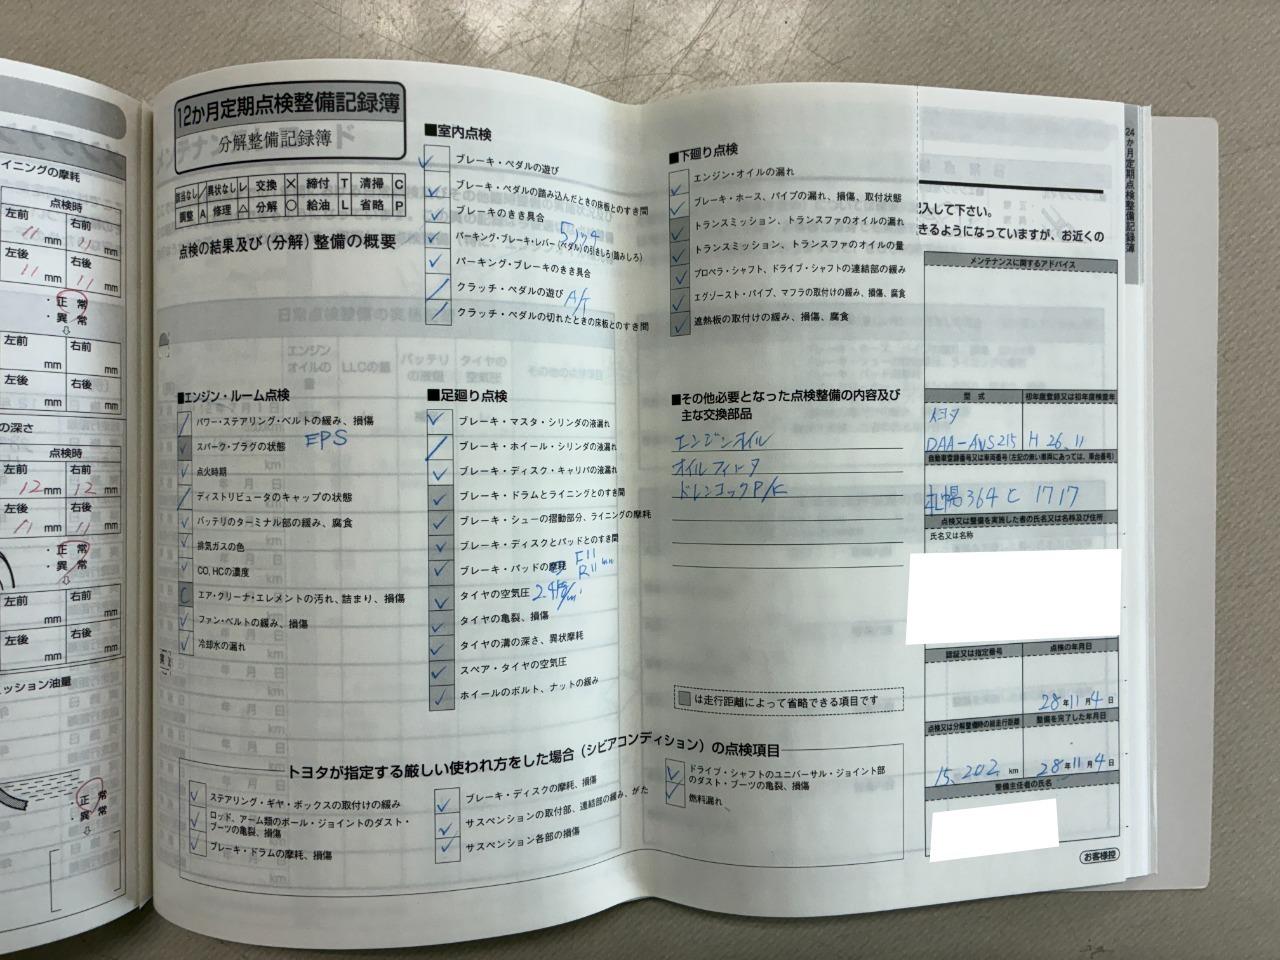 イニングの摩耗
点検時
左前
右前
11 mm
11 mm
左後
右後
11 mm
11 mm
・正 常
・異 常
左前
右前
mm
mm
左後
右後
mm
mm
の深さ
点検時
左前
右前
12 mm
12 mm
左後
右後
11 mm
11 mm
・正 常
・異 常
左前
右前
mm
mm
左後
右後
mm
mm
ッション油量
・正 常
・異 常
12か月定期点検整備記録簿
分解整備記録簿
該当なし / 異状なし レ 交換 × 締付 T 清掃 C
調整 A 修理 △ 分解 ○ 給油 L 省略 P
点検の結果及び(分解)整備の概要
■エンジン・ルーム点検
パワー・ステアリング・ベルトの緩み、損傷
スパーク・プラグの状態
EPS
点火時期
ディストリビュータのキャップの状態
バッテリのターミナル部の緩み、腐食
排気ガスの色
CO、HCの濃度
C エア・クリーナ・エレメントの汚れ、詰まり、損傷
ファン・ベルトの緩み、損傷
冷却水の漏れ
■室内点検
ブレーキ・ペダルの遊び
ブレーキ・ペダルの踏み込んだときの床板とのすき間
ブレーキのきき具合
5ノッチ
パーキング・ブレーキ・レバー(ペダル)の引きしろ(踏みしろ)
パーキング・ブレーキのきき具合
クラッチ・ペダルの遊び
A/T
クラッチ・ペダルの切れたときの床板とのすき間
■足廻り点検
ブレーキ・マスタ・シリンダの液漏れ
ブレーキ・ホイール・シリンダの液漏れ
ブレーキ・ディスク・キャリパの液漏れ
ブレーキ・ドラムとライニングとのすき間
ブレーキ・シューの摺動部分、ライニングの摩耗
ブレーキ・ディスクとパッドとのすき間
ブレーキ・パッドの摩耗
F11
R11 mm
タイヤの空気圧
タイヤの亀裂、損傷
タイヤの溝の深さ、異状摩耗
スペア・タイヤの空気圧
ホイールのボルト、ナットの緩み
■下廻り点検
エンジン・オイルの漏れ
ブレーキ・ホース、パイプの漏れ、損傷、取付状態
トランスミッション、トランスファのオイルの漏れ
トランスミッション、トランスファのオイルの量
プロペラ・シャフト、ドライブ・シャフトの連結部の緩み
エグゾースト・パイプ、マフラの取付けの緩み、損傷、腐食
遮熱板の取付けの緩み、損傷、腐食
■その他必要となった点検整備の内容及び
主な交換部品
エンジンオイル
オイルフィータ
ドレンコックP/K
は走行距離によって省略できる項目です
トヨタが指定する厳しい使われ方をした場合(シビアコンディション)の点検項目
ステアリング・ギヤ・ボックスの取付けの緩み
ロッド、アーム類のボール・ジョイントのダスト・
ブーツの亀裂、損傷
ブレーキ・ドラムの摩耗、損傷
ブレーキ・ディスクの摩耗、損傷
サスペンションの取付部、連結部の緩み、がた
サスペンション各部の損傷
ドライブ・シャフトのユニバーサル・ジョイント部
のダスト・ブーツの亀裂、損傷
燃料漏れ
24か月定期点検整備記録簿
記入して下さい。
きるようになっていますが、お近くの
メンテナンスに関するアドバイス
型 式
初年度登録又は初年度検査年
トヨタ
DAA-AVS215
H 26.11
自動車登録番号又は車両番号(左記の無い車両にあっては、車台番号)
札幌364と1717
点検又は整備を実施した者の氏名又は名称及び住所
氏名又は名称
認証又は指定番号
点検の年月日
28年11月4日
点検又は分解整備時の総走行距離
整備を完了した年月日
15,202 km
28年11月4日
整備主任者の氏名
お客様控